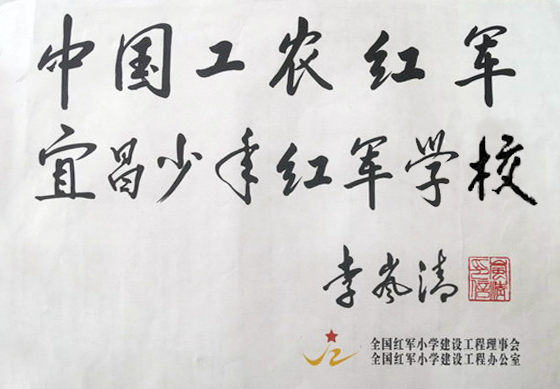 中国工农红军
宜昌少年红军学校
李岚清
全国红军小学建设工程理事会
全国红军小学建设工程办公室